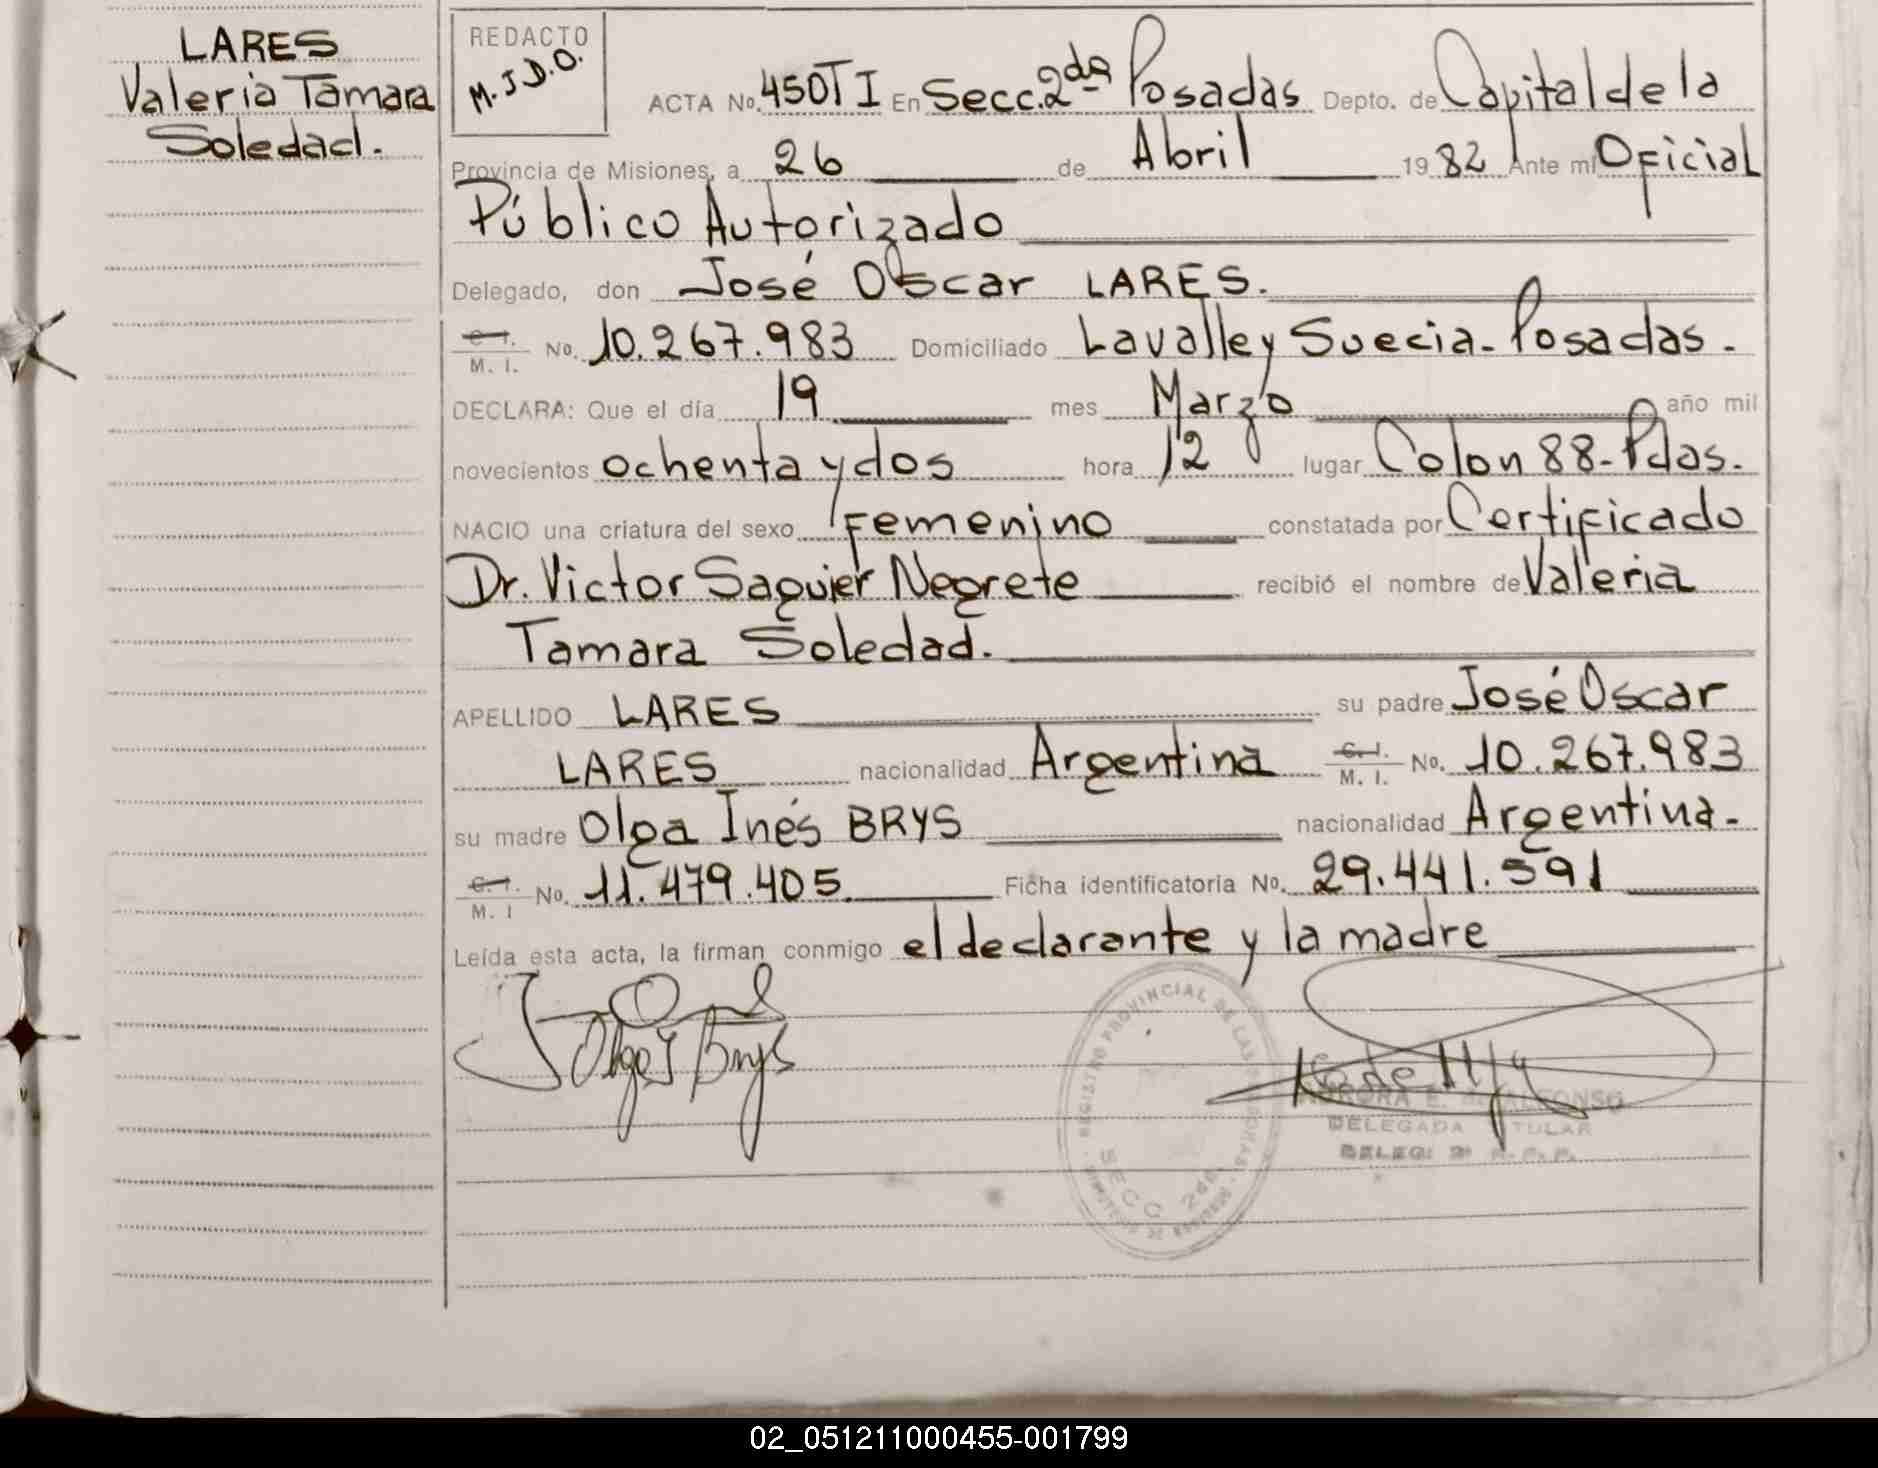 LARES
Valeria Tamara
Soledad.
REDACTO
M.J.D.O.
ACTA No. 450TI En Secc. 2da Posadas Depto. de Capital de la
Provincia de Misiones, a 26 de Abril 1982 Ante mi Oficial
Público Autorizado
Delegado, don José Oscar LARES.
C.I. M. I. No. 10.267.983 Domiciliado Lavalle y Suecia - Posadas.
DECLARA: Que el día 19 mes Marzo año mil
novecientos ochenta y dos hora 12 lugar Colon 88 - Pdas.
NACIO una criatura del sexo Femenino constatada por Certificado
Dr. Victor Saguier Negrete recibió el nombre de Valeria
Tamara Soledad.
APELLIDO LARES su padre José Oscar
LARES nacionalidad Argentina C.I. M. I. No. 10.267.983
su madre Olga Inés BRYS nacionalidad Argentina.
C.I. M. I No. 11.479.405. Ficha identificatoria No. 29.441.591
Leída esta acta, la firman conmigo el declarante y la madre
Olga I Brys
REGISTRO PROVINCIAL DE LAS PERSONAS
SECC 2da.
AURORA E. de ALFONSO
DELEGADA TITULAR
DELEG. 2a R. P. P.
02_051211000455-001799